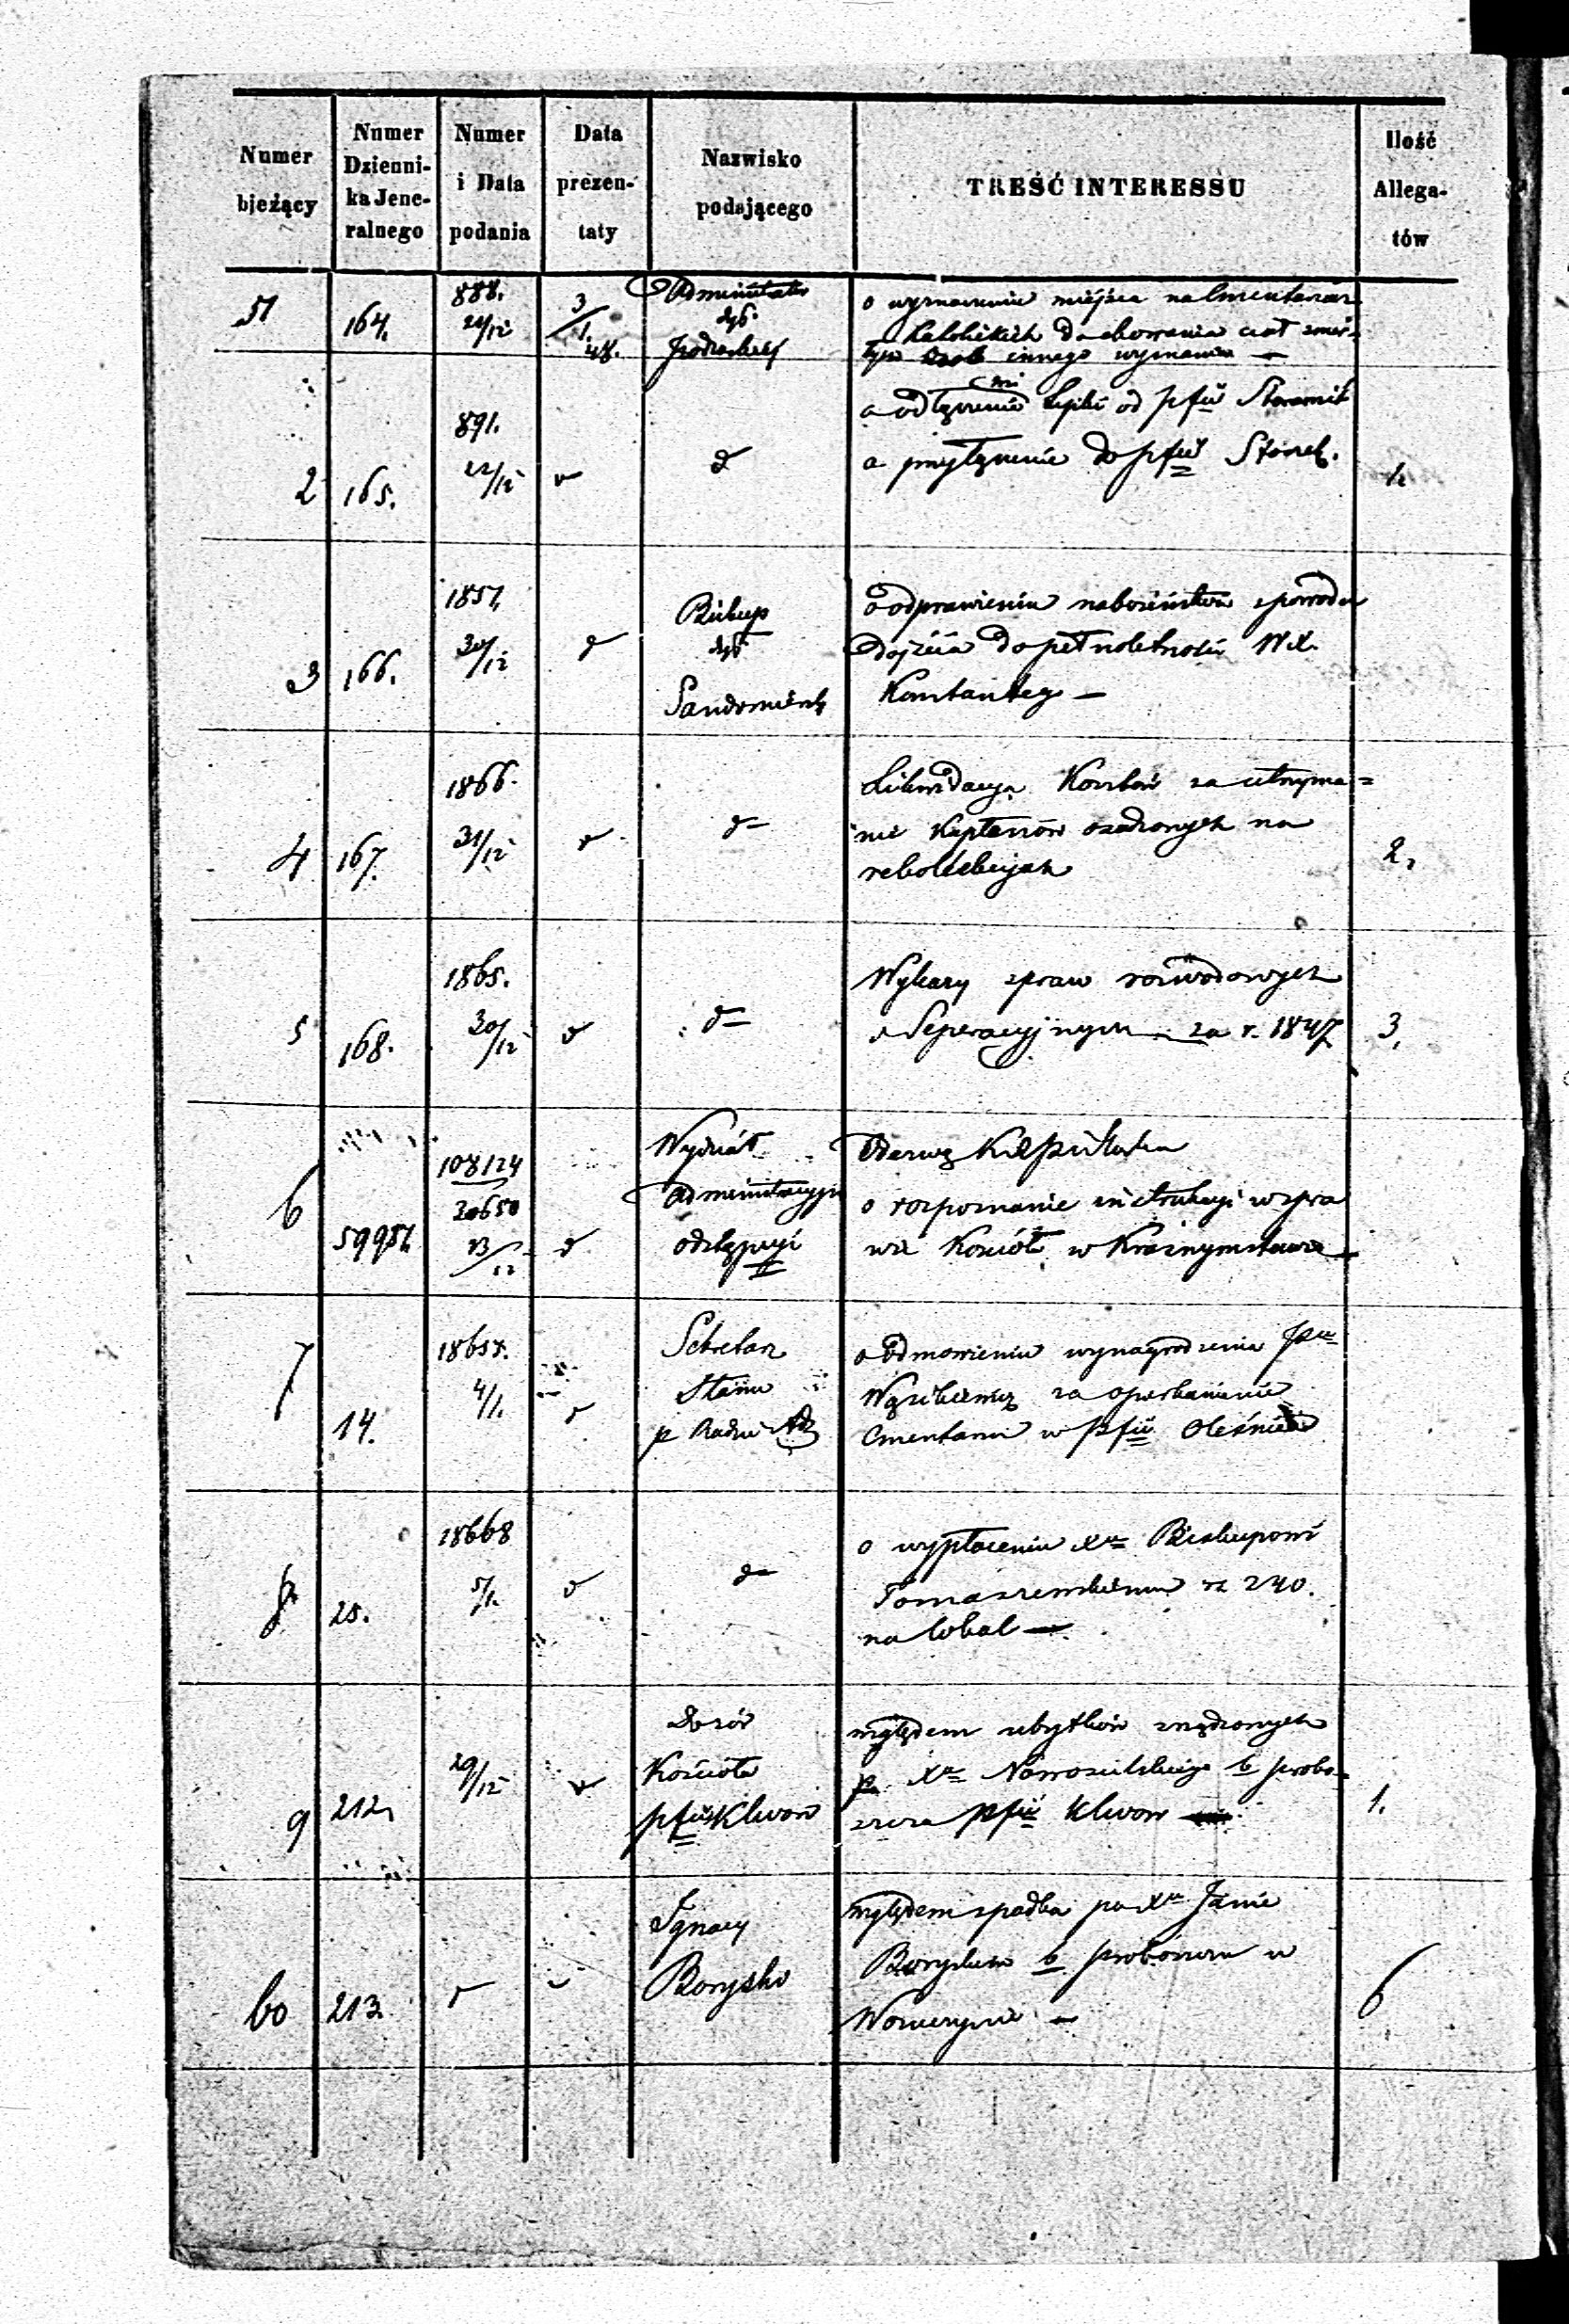 Numer bieżący
Numer Dziennika Jeneralnego
Numer i Data podania
Data prezentaty
Nazwisko podającego
TREŚĆ INTERESSU
Ilość Allegatów
51 164. 888. 3/1 48. Administrator
dyś.
Podlaskiej
o wyznaczenie miejsca na Cmentarzach
Katolickich do chowania ciał zmar-
łych osób innego wyznania —
2 165. 891. 22/12 d
o odłączenie od pfii
a przyłączenie do pfii
1.
3 166. 1857. 30/12 d Biskup
dyś
Sandomierski
o odprawieniu nabożeństwa z powodu
dojścia do pełnoletności W.X.
Konstantego —
4 167. 1866. 31/12 d d
Likwidacya Kosztów za utrzyma=
nie Kapłanów osadzonych na
rekollekcyjach
2.
5 168. 1865. 30/12 d d
Wykazy spraw rozwodowych
i Seperacyjnych za r. 1847
3.
6 59951 108124
30650
13/12 d Wydział
Administracyjn
odstępuje
Odezwę
o rozpoznanie instrukcyi w spra
wie Kościoła w Krasnymstawie
7 14. 18657. 4/1. d Sekretarz
Stanu
p Radzie
o odmówieniu wynagrodzenia
za
Cmentarza w pfii Oleśnica
8 25. 18668 5/1. d d
o wypłaceniu Xu Biskupowi
Tomaszewskiemu rs 240.
na lokal —
9 212. 29/12 d Dozór
Kościoła
pfii Klwow
względem ubytków zrządzonych
p. Xa Nowosielskiego b probo=
szcza pfii Klwow
1.
60 213. d Ignacy
Borysko
względem spadku po Xu Janie
Borysku b proboszczu w
6